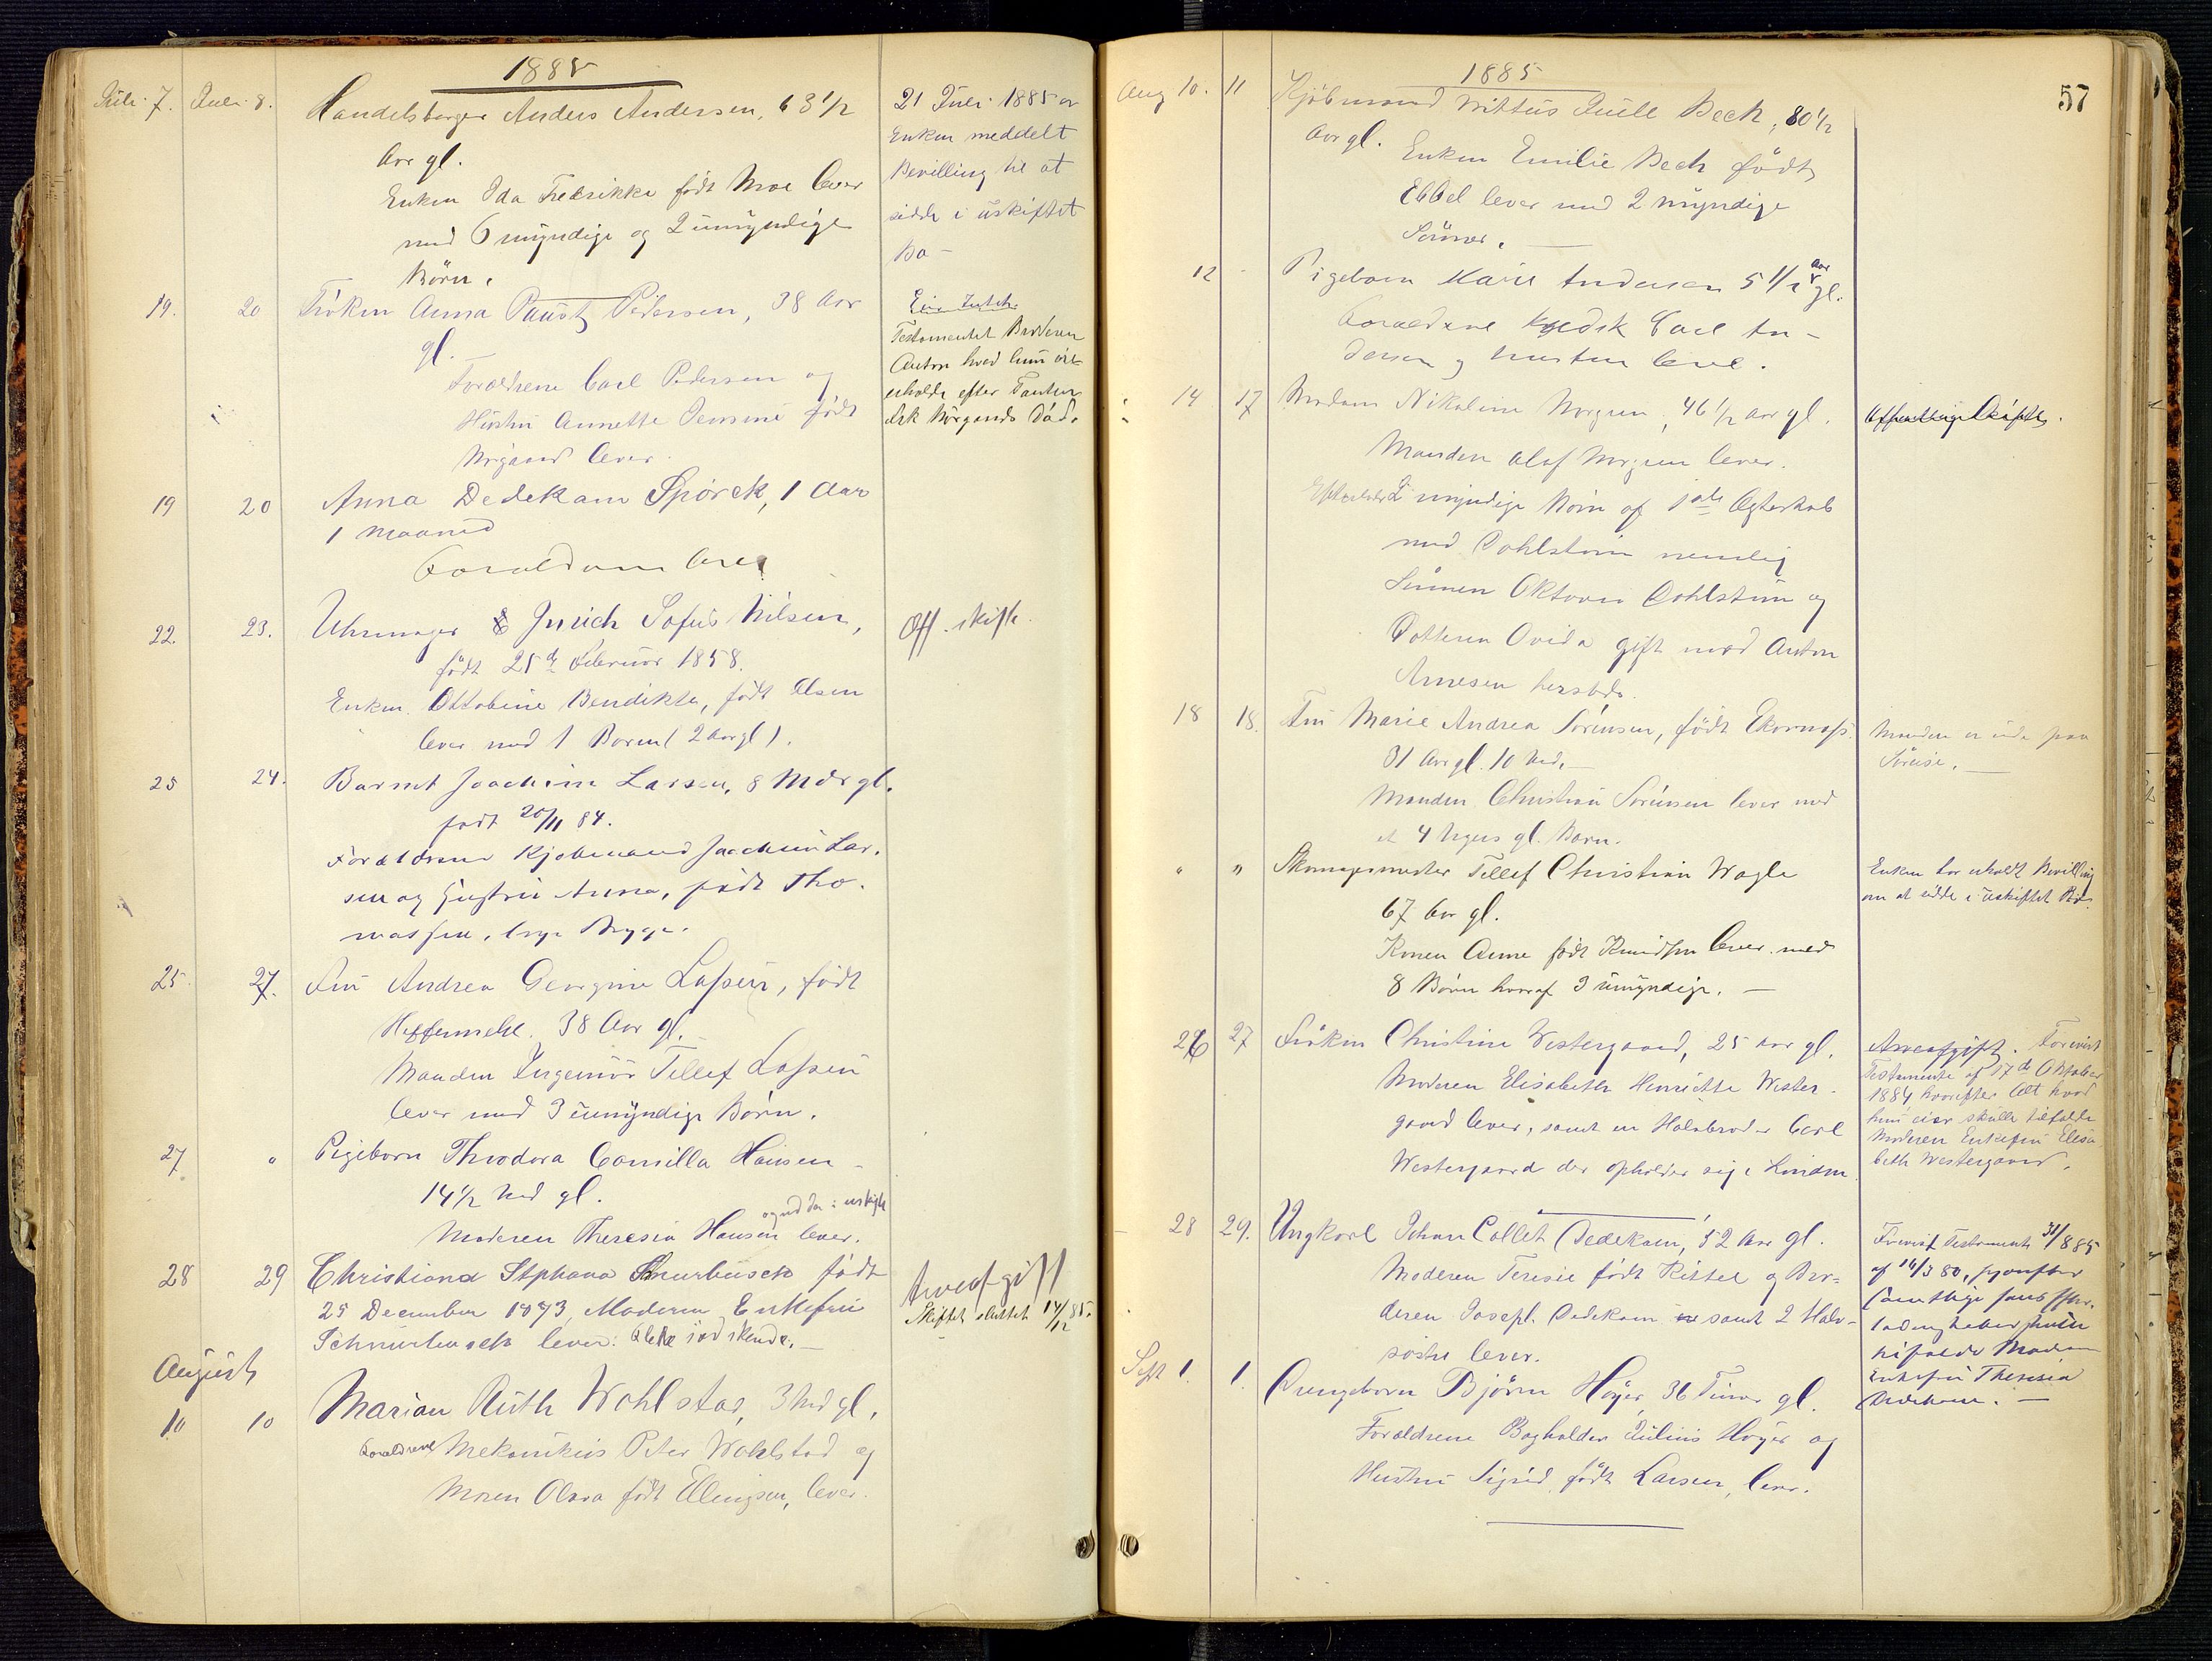 1885
Juli 7. Juli 8. Handelsborger Anders Andersen, 63 1/2
Aar gl.
Enken Ida Fredrikke født Moe lever
med 6 myndige og 2 umyndige
Børn.
21 Juli 1885 er
Enken meddelt
Bevilling til at
sidde i uskiftet
Bo –
19. 20 Frøken Anna Paust Pedersen, 38 Aar
gl.
Forældrene Carl Pedersen og
Hustru Annette Jensine født
Nørgaard lever.
Testamentet Broderen
Anton hvad hun
erholdt efter
19 20 Anna Dedekam Spørck, 1 Aar
1 Maaned
Forældrene lever
22. 23. Uhrmager Jurich Sofus Nilsen,
født 25de Februar 1858.
Enken Ottobine Bendikte, født Olsen
lever med 1 Barn (2 Aar gl).
Off. skifte.
25 24. Barnet Joachim Larsen, 8 Mdr gl.
født 20/11 84.
Forældrene Kjøbmand Joachim Lar-
sen og Hustru Anna, født Tho-
massen, Brygge.
25 27. Fru Andrea Georgine Lassen, født
Heffermehl. 38 Aar gl.
Manden Ingeniør Tellef Lassen
lever med 3 umyndige Børn.
27 " Pigebarn Theodora Camilla Hansen
14 1/2 Md gl.
Moderen Theresia Hansen lever.
28 29 Christiana Stphana Schnurbusch født
25 December 1873, Moderen Enkefru
Schnurbusch lever.
Arveafgift
Skiftet sluttet 14/12 85.
August
10 10 Marian Ruth Wohlstad, 3 Md gl,
Forældrene Mekanikus Peter Wohlstad og
Konen Olava født Ellingsen, lever.
57
1885
Aug 10. 11 Kjøbmand Vittus Juell Bech, 80 1/2
Aar gl.
Enken Emilie Bech født
Ebbel lever med 2 myndige
Sønner.
12 Pigebarn Karen Andersen 5 1/2 Aar gl.
Forældrene Carl An-
dersen og hustru leve.
14 17 Madam Nikoline Norgren, 46 1/2 Aar gl.
Manden Olaf Norgren lever.
Efterlader 2 myndige Børn af 1ste Ægteskab
med Dohlstrøm nemlig
Sønnen Oktavius Dohlstrøm og
Datteren Ovida gift med Anton
Arnesen hersteds.
Offentlige Skifte.
18 18. Fru Marie Andrea Sørensen, født Ekornaas
31 Aar gl. 10 Md. –
Manden Christian Sørensen lever med
et 4 Ugers gl. Barn.
Manden er ude paa
Søreise. –
" " Skomagermester Tellef Christian Vagle
67 Aar gl.
Konen Anne født Knudsen lever med
8 Børn hvoraf 3 umyndige. –
Enken har erholdt Bevilling
om at sidde i uskiftet Bo.
26 27 Frøken Christine Westergaard, 25 Aar gl.
Moderen Elisabeth Henriette Wester-
gaard lever, samt en Halvbroder Carl
Westergaard der opholder sig i London
Arveafgift. Forevist
Testamente af 17de Oktober
1884 hvorefter Alt hvad
hun eier skulle tilfalde
Moderen Enkefru Elisa-
beth Westergaard.
28 29. Ungkarl Johan Collet Dedekam, 52 Aar gl.
Moderen Teresie født Kittel og Bro-
deren Joseph Dedekam samt 2 Halv-
søstre lever.
Forevist Testamente 31/8 85
af 14/3 80, hvorefter
samtlige hans
tilfalde Moderen
Enkefru Theresia
Dedekam. –
Sept 1. 1. Drengebarn Bjørn Høyer, 36 Timer gl.
Forældrene Bogholder Julius Høyer og
Hustru Sigrid, født Larsen, lever.